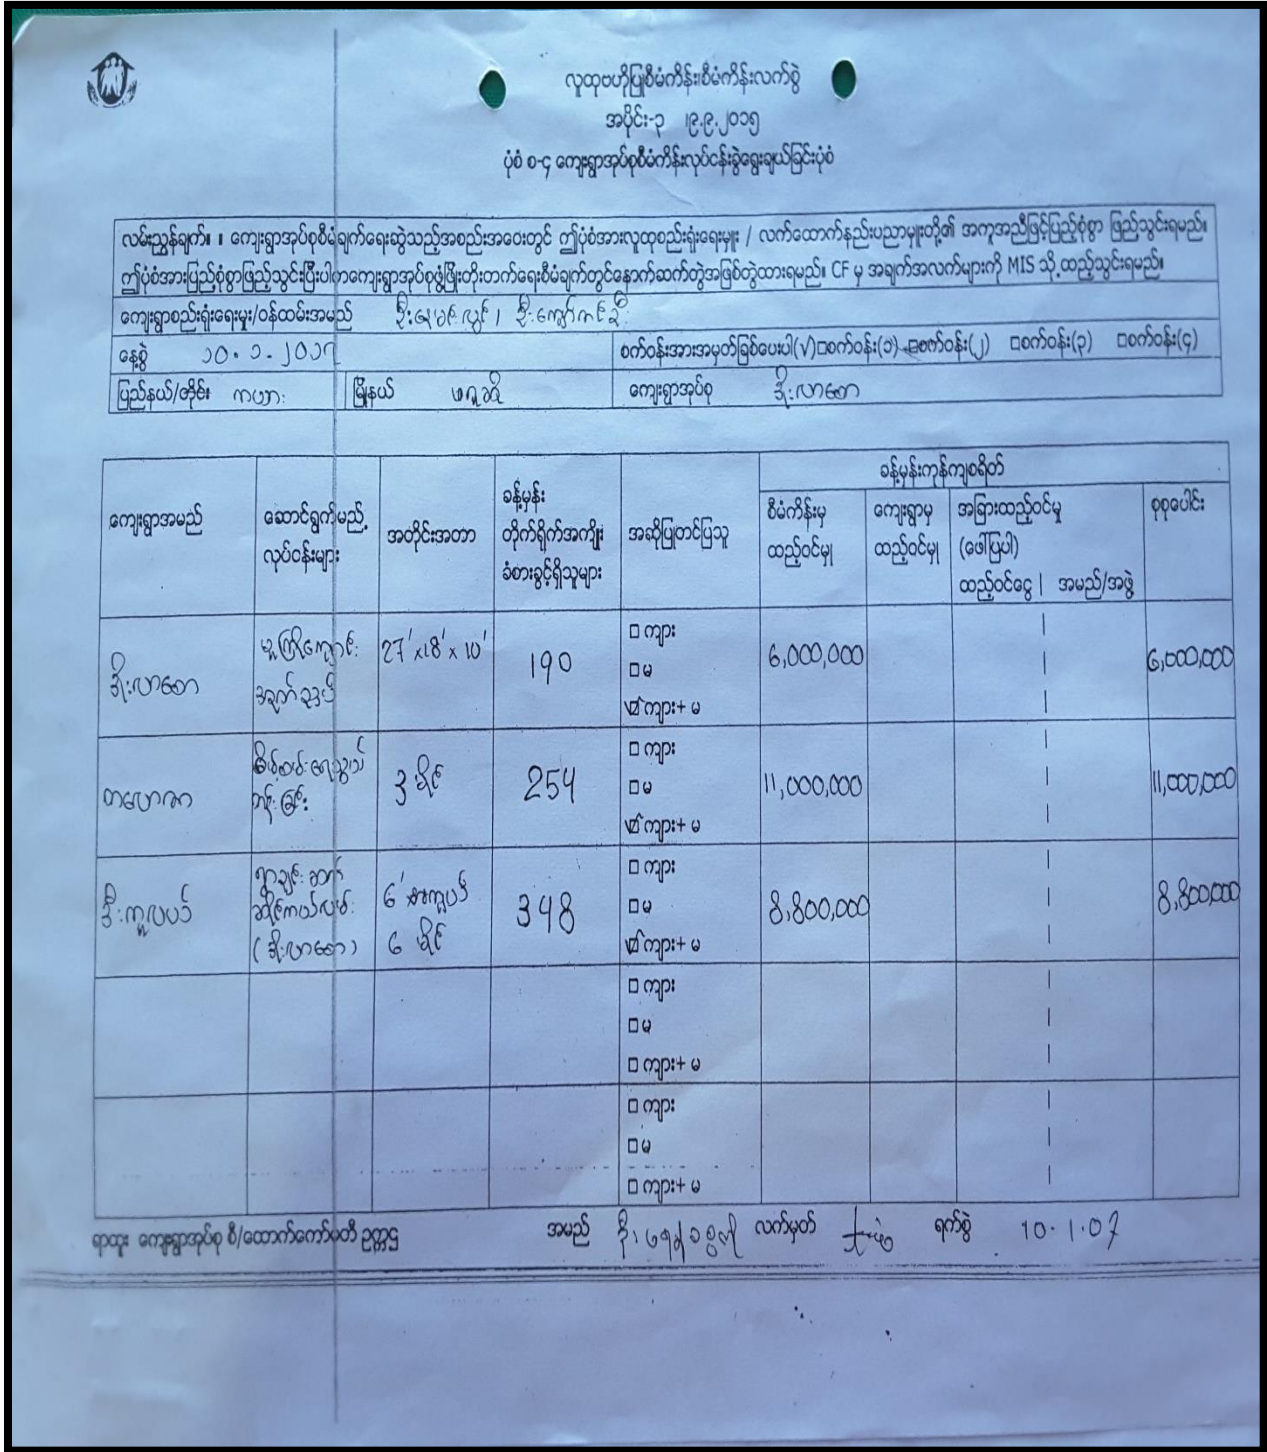 လူထုဗဟိုပြုစီမံကိန်း၊စီမံကိန်းလက်စွဲ
အပိုင်း-၃ ၊၉.၉.၂၀၁၅
ပုံစံ စ-၄ ကျေးရွာအုပ်စုစီမံကိန်းလုပ်ငန်းခွဲရွေးချယ်ခြင်းပုံစံ
လမ်းညွှန်ချက်။ ။ ကျေးရွာအုပ်စုစီမံချက်ရေးဆွဲသည့်အစည်းအဝေးတွင် ဤပုံစံအားလူထုစည်းရုံးရေးမှူး / လက်ထောက်နည်းပညာမှူးတို့၏ အကူအညီဖြင့်ပြည့်စုံစွာ ဖြည့်သွင်းရမည်။
ဤပုံစံအားပြည့်စုံစွာဖြည့်သွင်းပြီးပါကကျေးရွာအုပ်စုဖွံ့ဖြိုးတိုးတက်ရေးစီမံချက်တွင်နောက်ဆက်တွဲအဖြစ်တွဲထားရမည်။ CF မှ အချက်အလက်များကို MIS သို့ထည့်သွင်းရမည်။
ကျေးရွာစည်းရုံးရေးမှူး/ဝန်ထမ်းအမည်
နေ့စွဲ ၁၀.၁.၂၀၁၇ စက်ဝန်းအားအမှတ်ခြစ်ပေးပါ(√)□စက်ဝန်း(၁) □စက်ဝန်း(၂) □စက်ဝန်း(၃) □စက်ဝန်း(၄)
ပြည်နယ်/တိုင်း ကယား မြို့နယ် ဖရူဆို ကျေးရွာအုပ်စု ဒိုးလာစော
ကျေးရွာအမည် ဆောင်ရွက်မည့် လုပ်ငန်းများ အတိုင်းအတာ ခန့်မှန်း တိုက်ရိုက်အကျိုး ခံစားခွင့်ရှိသူများ အဆိုပြုတင်ပြသူ ခန့်မှန်းကုန်ကျစရိတ်
စီမံကိန်းမှ ထည့်ဝင်မှု ကျေးရွာမှ ထည့်ဝင်မှု အခြားထည့်ဝင်မှု (ဖေါ်ပြပါ) ထည့်ဝင်ငွေ | အမည်/အဖွဲ့ စုစုပေါင်း
ဒိုးလာစော မူကြိုကျောင်း 27'x18'x10' 190 □ ကျား 6,000,000 6,000,000
□ မ
☑ ကျား+ မ
3 မိုင် 254 □ ကျား 11,000,000 11,000,000
□ မ
☑ ကျား+ မ
6 မိုင် 348 □ ကျား 8,800,000 8,800,000
□ မ
(ဒိုးလာစော) ☑ ကျား+ မ
□ ကျား
□ မ
□ ကျား+ မ
□ ကျား
□ မ
□ ကျား+ မ
ရာထူး ကျေးရွာအုပ်စု စီ/ထောက်ကော်မတီ ဥက္ကဌ အမည် လက်မှတ် ရက်စွဲ 10.1.07